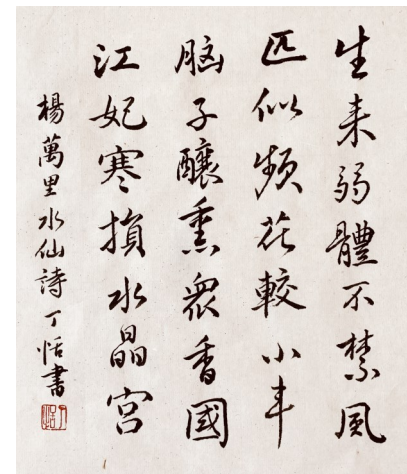 生来弱體不禁風
匹似頻花較小丰
脑子醸熏眾香國
江妃寒損水晶宮
楊萬里水仙詩丁恬書